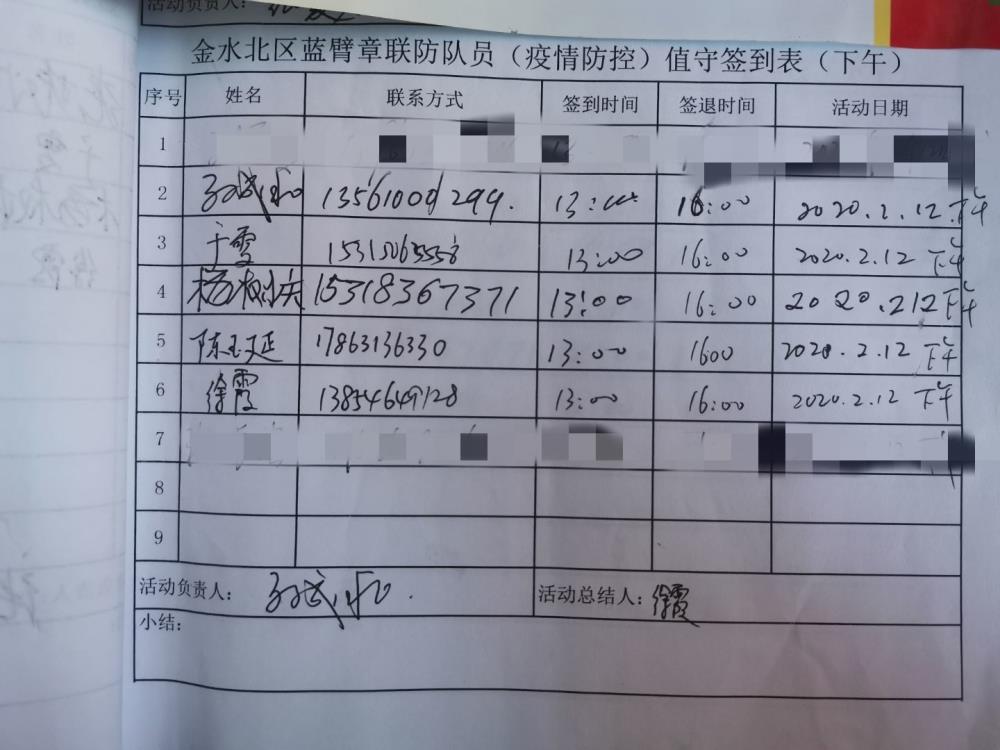 活动负责人：
金水北区蓝臂章联防队员（疫情防控）值守签到表（下午）
序号 姓名 联系方式 签到时间 签退时间 活动日期
1
2 13561000299. 13:00 16:00 2020.2.12下午
3 于雪 13:00 16:00 2020.2.12 下午
4 杨树庆 15318367371 13:00 16:00 2020.212下午
5 陈玉延 17863136330 13:00 1600 2020.2.12 下午
6 徐霞 13854649128 13:00 16:00 2020.2.12 下午
7
8
9
活动负责人： 活动总结人：徐霞
小结：